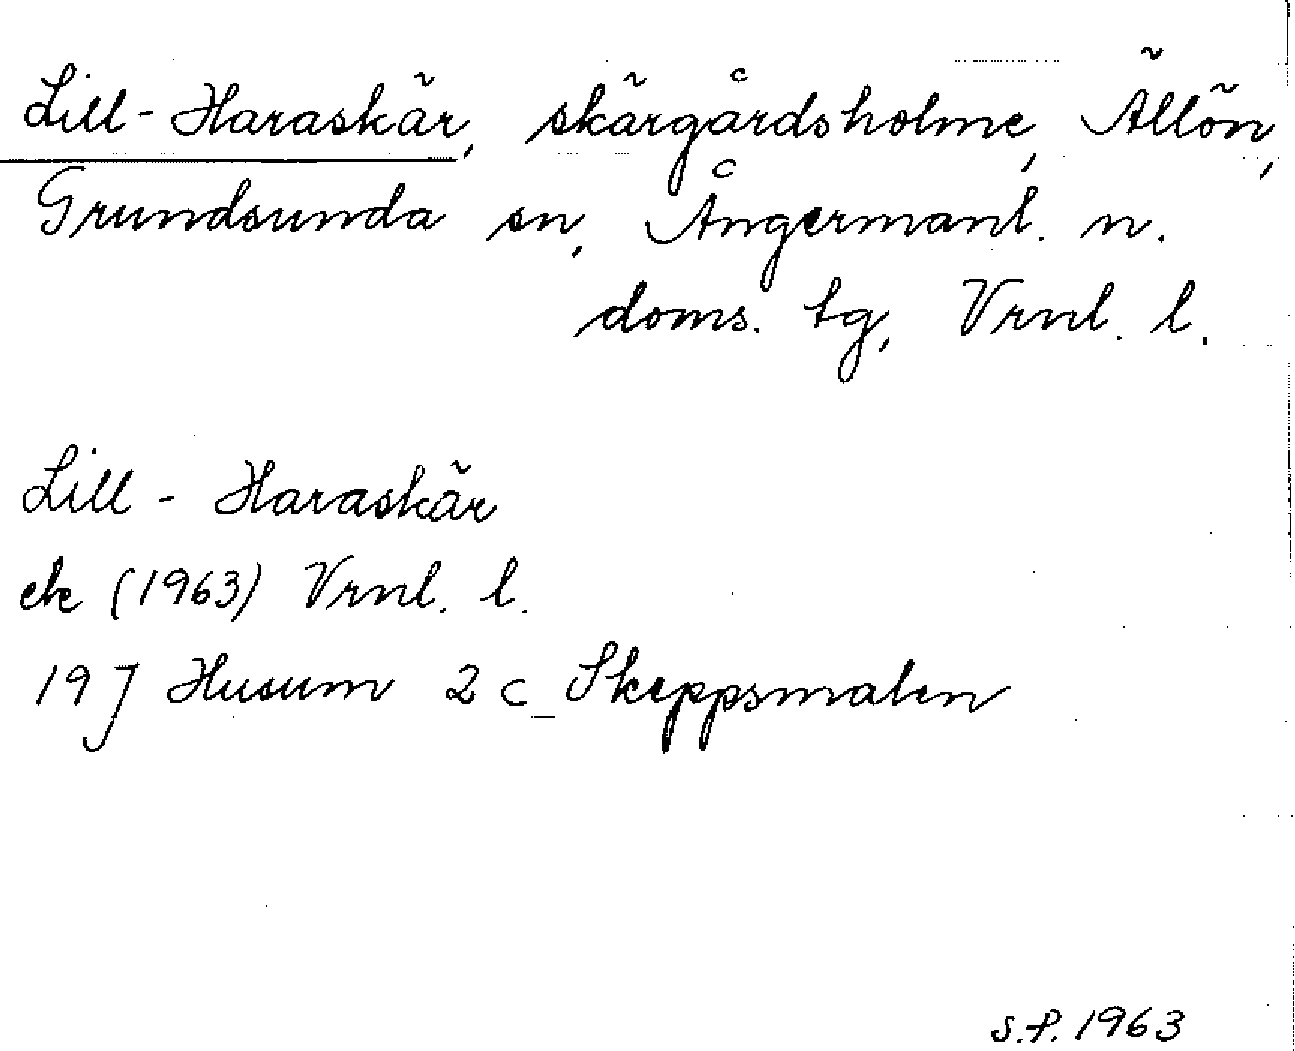 Lill-Haraskär, skärgårdsholme, Ällön,
Grundsunda sn, Ångermanl. n.
doms. tg, Vrnl. l.
Lill - Haraskär
ek (1963) Vrnl. l.
19 J Husum 2 c Skeppsmalen
S.P. 1963